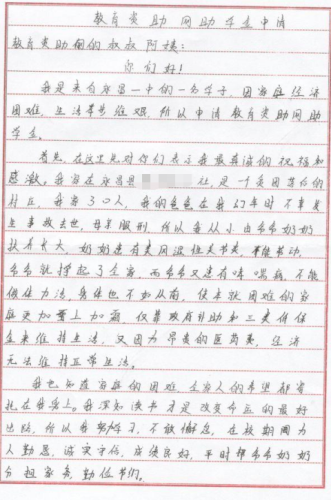 教育资助网助学金申请
教育资助网的叔叔阿姨：
你们好！
我是来自永昌一中的一名学子，因家庭经济
困难，生活常常维艰，所以申请教育资助网助
学金。
首先，在这里先对你们表示我最真诚的祝福和
感激。我家在永昌县 社，是一个贫困落后的
村庄，我家了口人，我的爸爸在我幼年时不幸发
生事故去世，母亲服刑，所以我从小由爷爷奶奶
扶养长大，奶奶患有类风湿性关节炎，不能劳动，
爷爷就撑起了全家，而爷爷又患有哮喘病，不能
做体力活，身体也不如从前，使本就困难的家
庭更加雪上加霜，仅靠政府补助和三类低保
金来维持生活，又因为昂贵的医药费，经济
无法维持正常生活。
我也知道家庭的困难，全家人的希望都寄
托在我身上。我深知读书才是改变命运的最好
出路，所以我努力学习，不敢懈怠，在校期间为
人勤恳，诚实守信，成绩良好，平时帮爷爷奶奶
分担家务，勤俭节约。